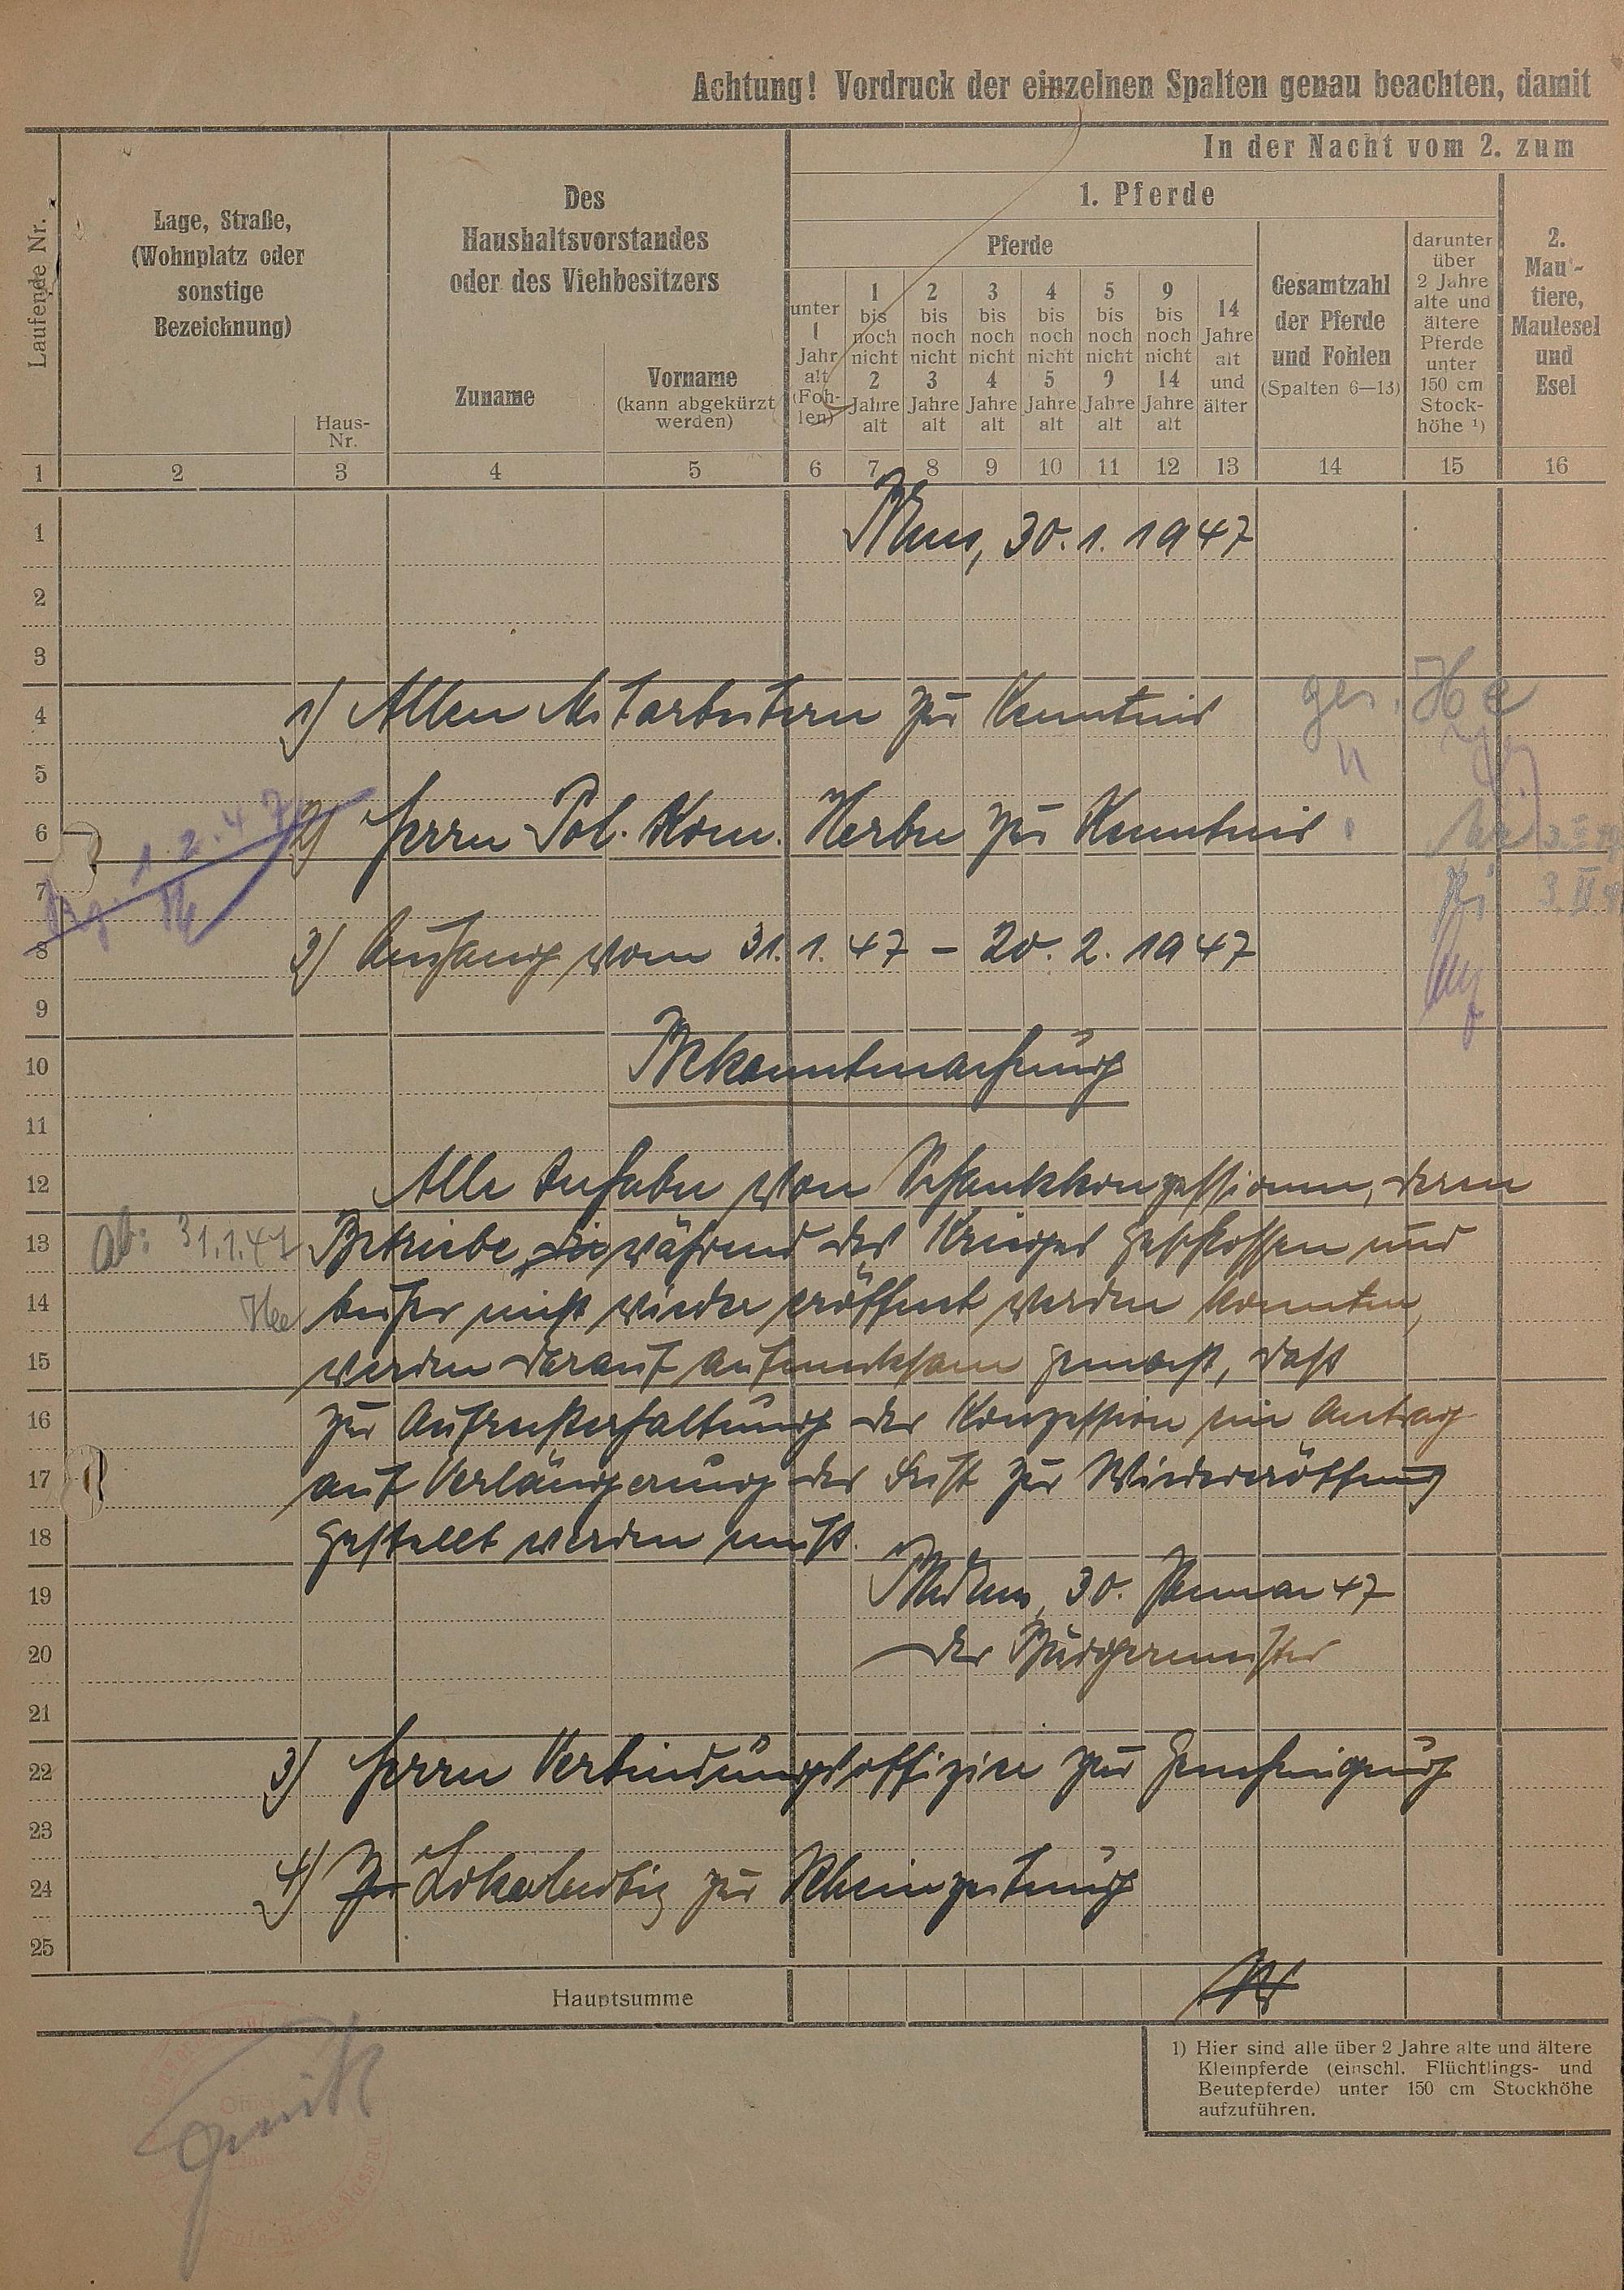 Achtung! Vordruck der einzelnen Spalten genau beachten, damit
In der Nacht vom 2. zum
Laufende Nr.
Lage, Straße,
(Wohnplatz oder
sonstige
Bezeichnung)
Haus-
Nr.
Des
Haushaltsvorstandes
oder des Viehbesitzers
Zuname
Vorname
(kann abgekürzt
werden)
1. Pferde
Pferde
unter
1
Jahr
alt
(Foh-
len)
1
bis
noch
nicht
2
Jahre
alt
2
bis
noch
nicht
3
Jahre
alt
3
bis
noch
nicht
4
Jahre
alt
4
bis
noch
nicht
5
Jahre
alt
5
bis
noch
nicht
9
Jahre
alt
9
bis
noch
nicht
14
Jahre
alt
14
Jahre
alt
und
älter
Gesamtzahl
der Pferde
und Fohlen
(Spalten 6—13)
darunter
über
2 Jahre
alte und
ältere
Pferde
unter
150 cm
Stock-
höhe ¹)
2.
Mau'-
tiere,
Maulesel
und
Esel
1 2 3 4 5 6 7 8 9 10 11 12 13 14 15 16
1
30.1.1947
2
3
4
1) Allen Mitarbeitern zur Kenntnis
ges. He
5
"
6
2) Herrn Pol. Kom. zur Kenntnis
1.2.47
7
3. II
8
3) Aushang vom 31.1.47 – 20.2.1947
9
10
Bekanntmachung
11
12
Alle Inhaber von Schankkonzessionen, deren
13
ab: 31.1.47
Betriebe, die während des Krieges geschlossen und
14
bisher nicht wieder eröffnet werden konnten,
15
werden darauf aufmerksam gemacht, daß
16
zur Aufrechterhaltung der Konzession ein Antrag
17
auf Verlängerung der Frist zur Wiedereröffnung
18
gestellt werden muß.
19
30. Januar 47
20
Der Bürgermeister
21
22
3) Herrn Verbindungsoffizier zur Genehmigung
23
24
4) Zur Lokalnotiz zur Rheinzeitung
25
Hauptsumme
1) Hier sind alle über 2 Jahre alte und ältere
Kleinpferde (einschl. Flüchtlings- und
Beutepferde) unter 150 cm Stockhöhe
aufzuführen.